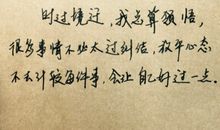 时过境迁，我总算领悟，
很多事情不能太过纠结，放平心态
不去计较每件事，会让自己好过一点。